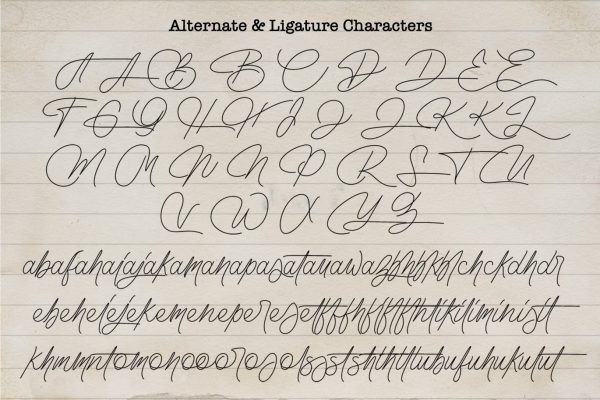 Alternate & Ligature Characters
A A B B C D D E E
F G G H H I J J K K L
M M N N P R S T U
V W X Y Z
abafahaiajakamanapasatauawazbhbkblchckdhdr
ebeheiejekemeneperesetfffhfkflfthtikiliminisit
khmmntomonooorosolssstshthtlubufuhukulut